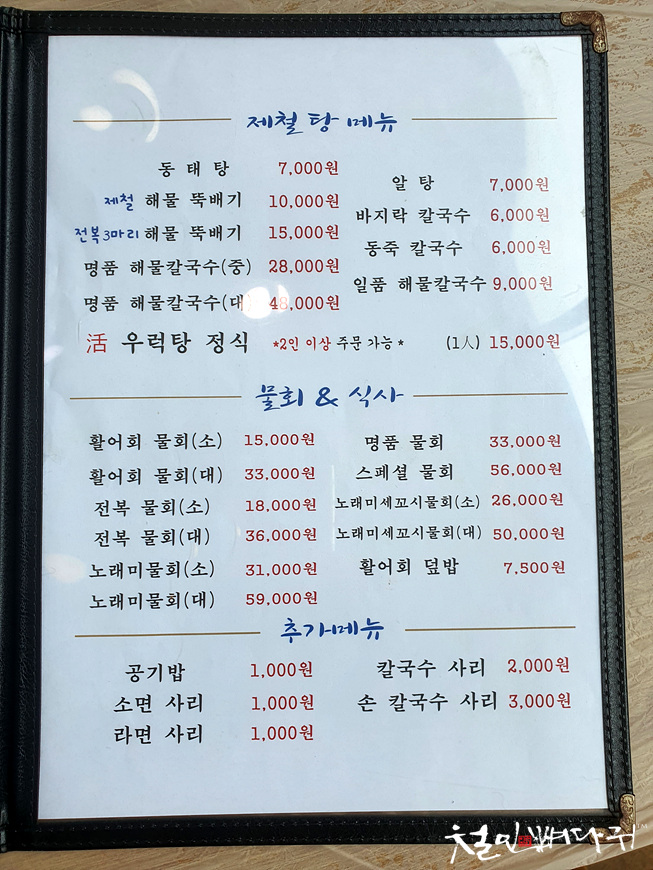 제철 탕 메뉴
동 태 탕 7,000원
제철 해물 뚝배기 10,000원
전복3마리 해물 뚝배기 15,000원
명품 해물칼국수(중) 28,000원
명품 해물칼국수(대) 48,000원
알 탕 7,000원
바지락 칼국수 6,000원
동죽 칼국수 6,000원
일품 해물칼국수 9,000원
活 우럭탕 정식 *2인 이상 주문 가능* (1人) 15,000원
물회 & 식사
활어회 물회(소) 15,000원
활어회 물회(대) 33,000원
전복 물회(소) 18,000원
전복 물회(대) 36,000원
노래미물회(소) 31,000원
노래미물회(대) 59,000원
명품 물회 33,000원
스페셜 물회 56,000원
노래미세꼬시물회(소) 26,000원
노래미세꼬시물회(대) 50,000원
활어회 덮밥 7,500원
추가메뉴
공기밥 1,000원
소면 사리 1,000원
라면 사리 1,000원
칼국수 사리 2,000원
손 칼국수 사리 3,000원